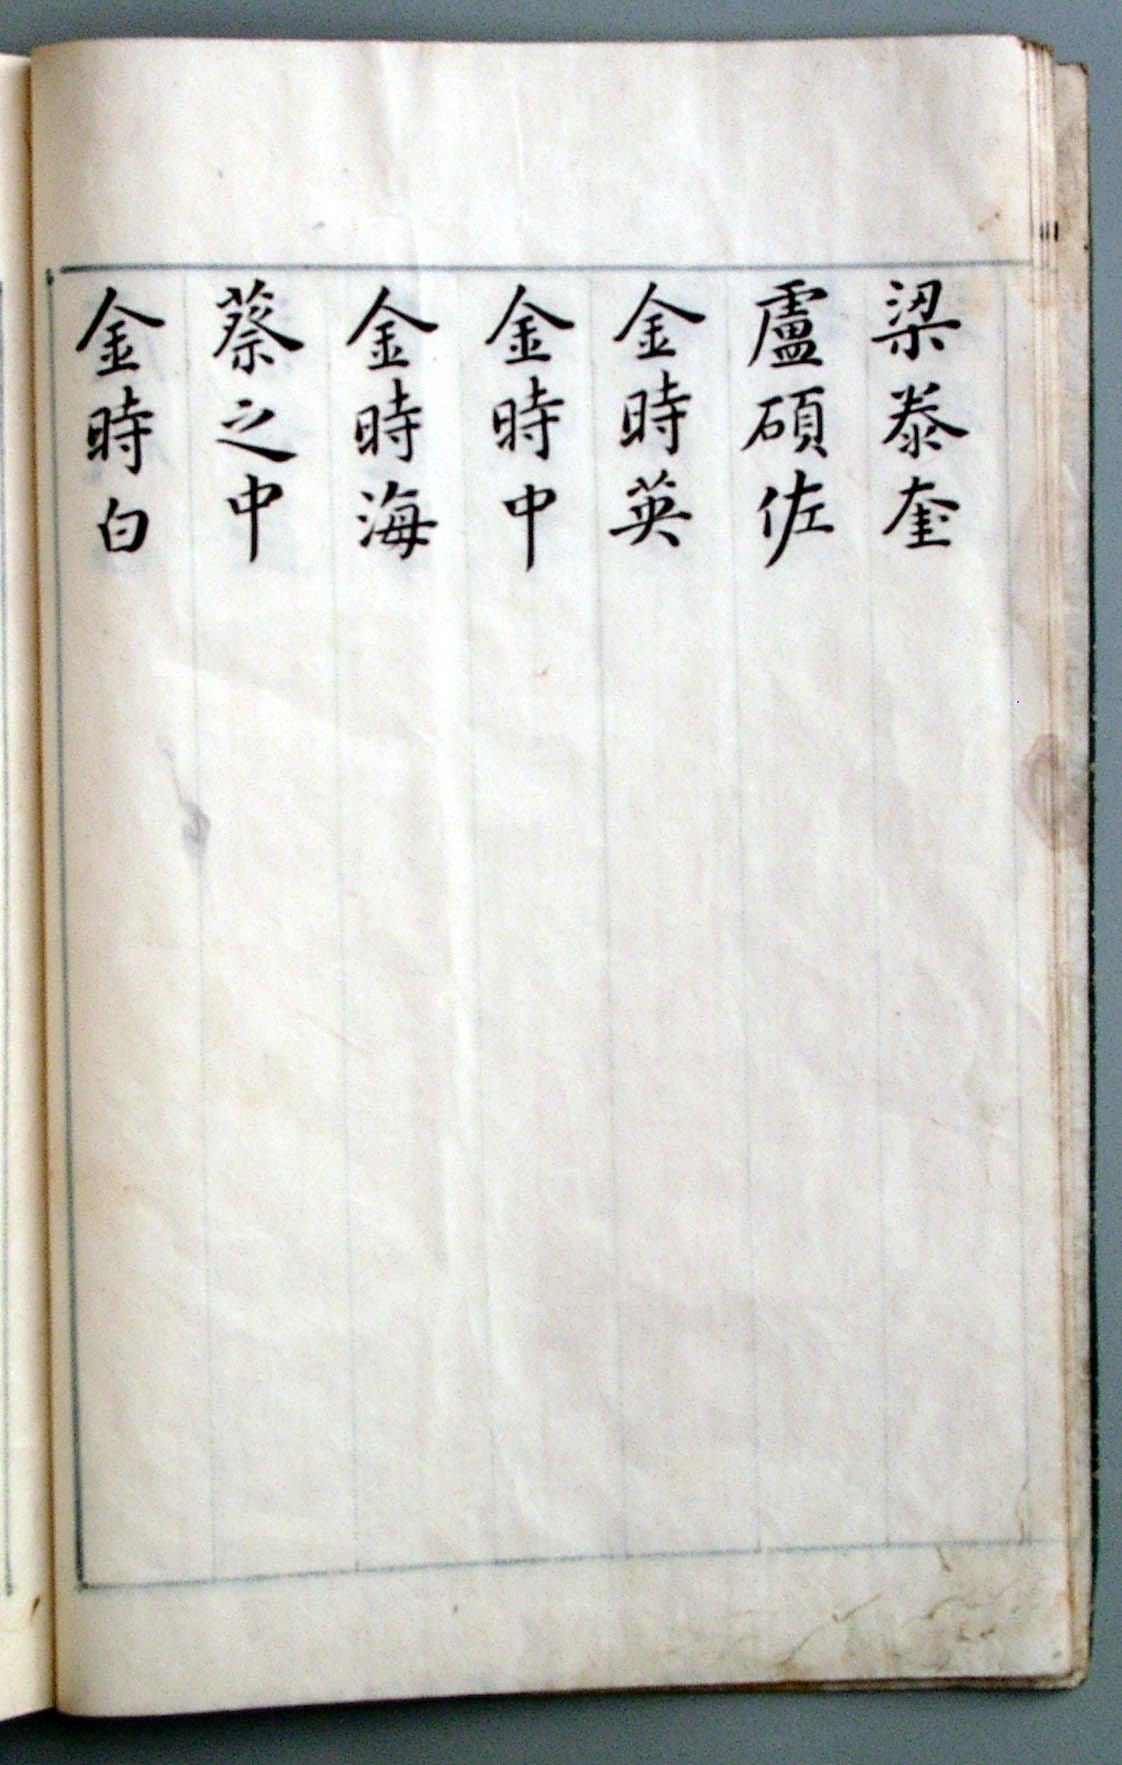 梁泰奎
盧碩佐
金時英
金時中
金時海
蔡之中
金時白